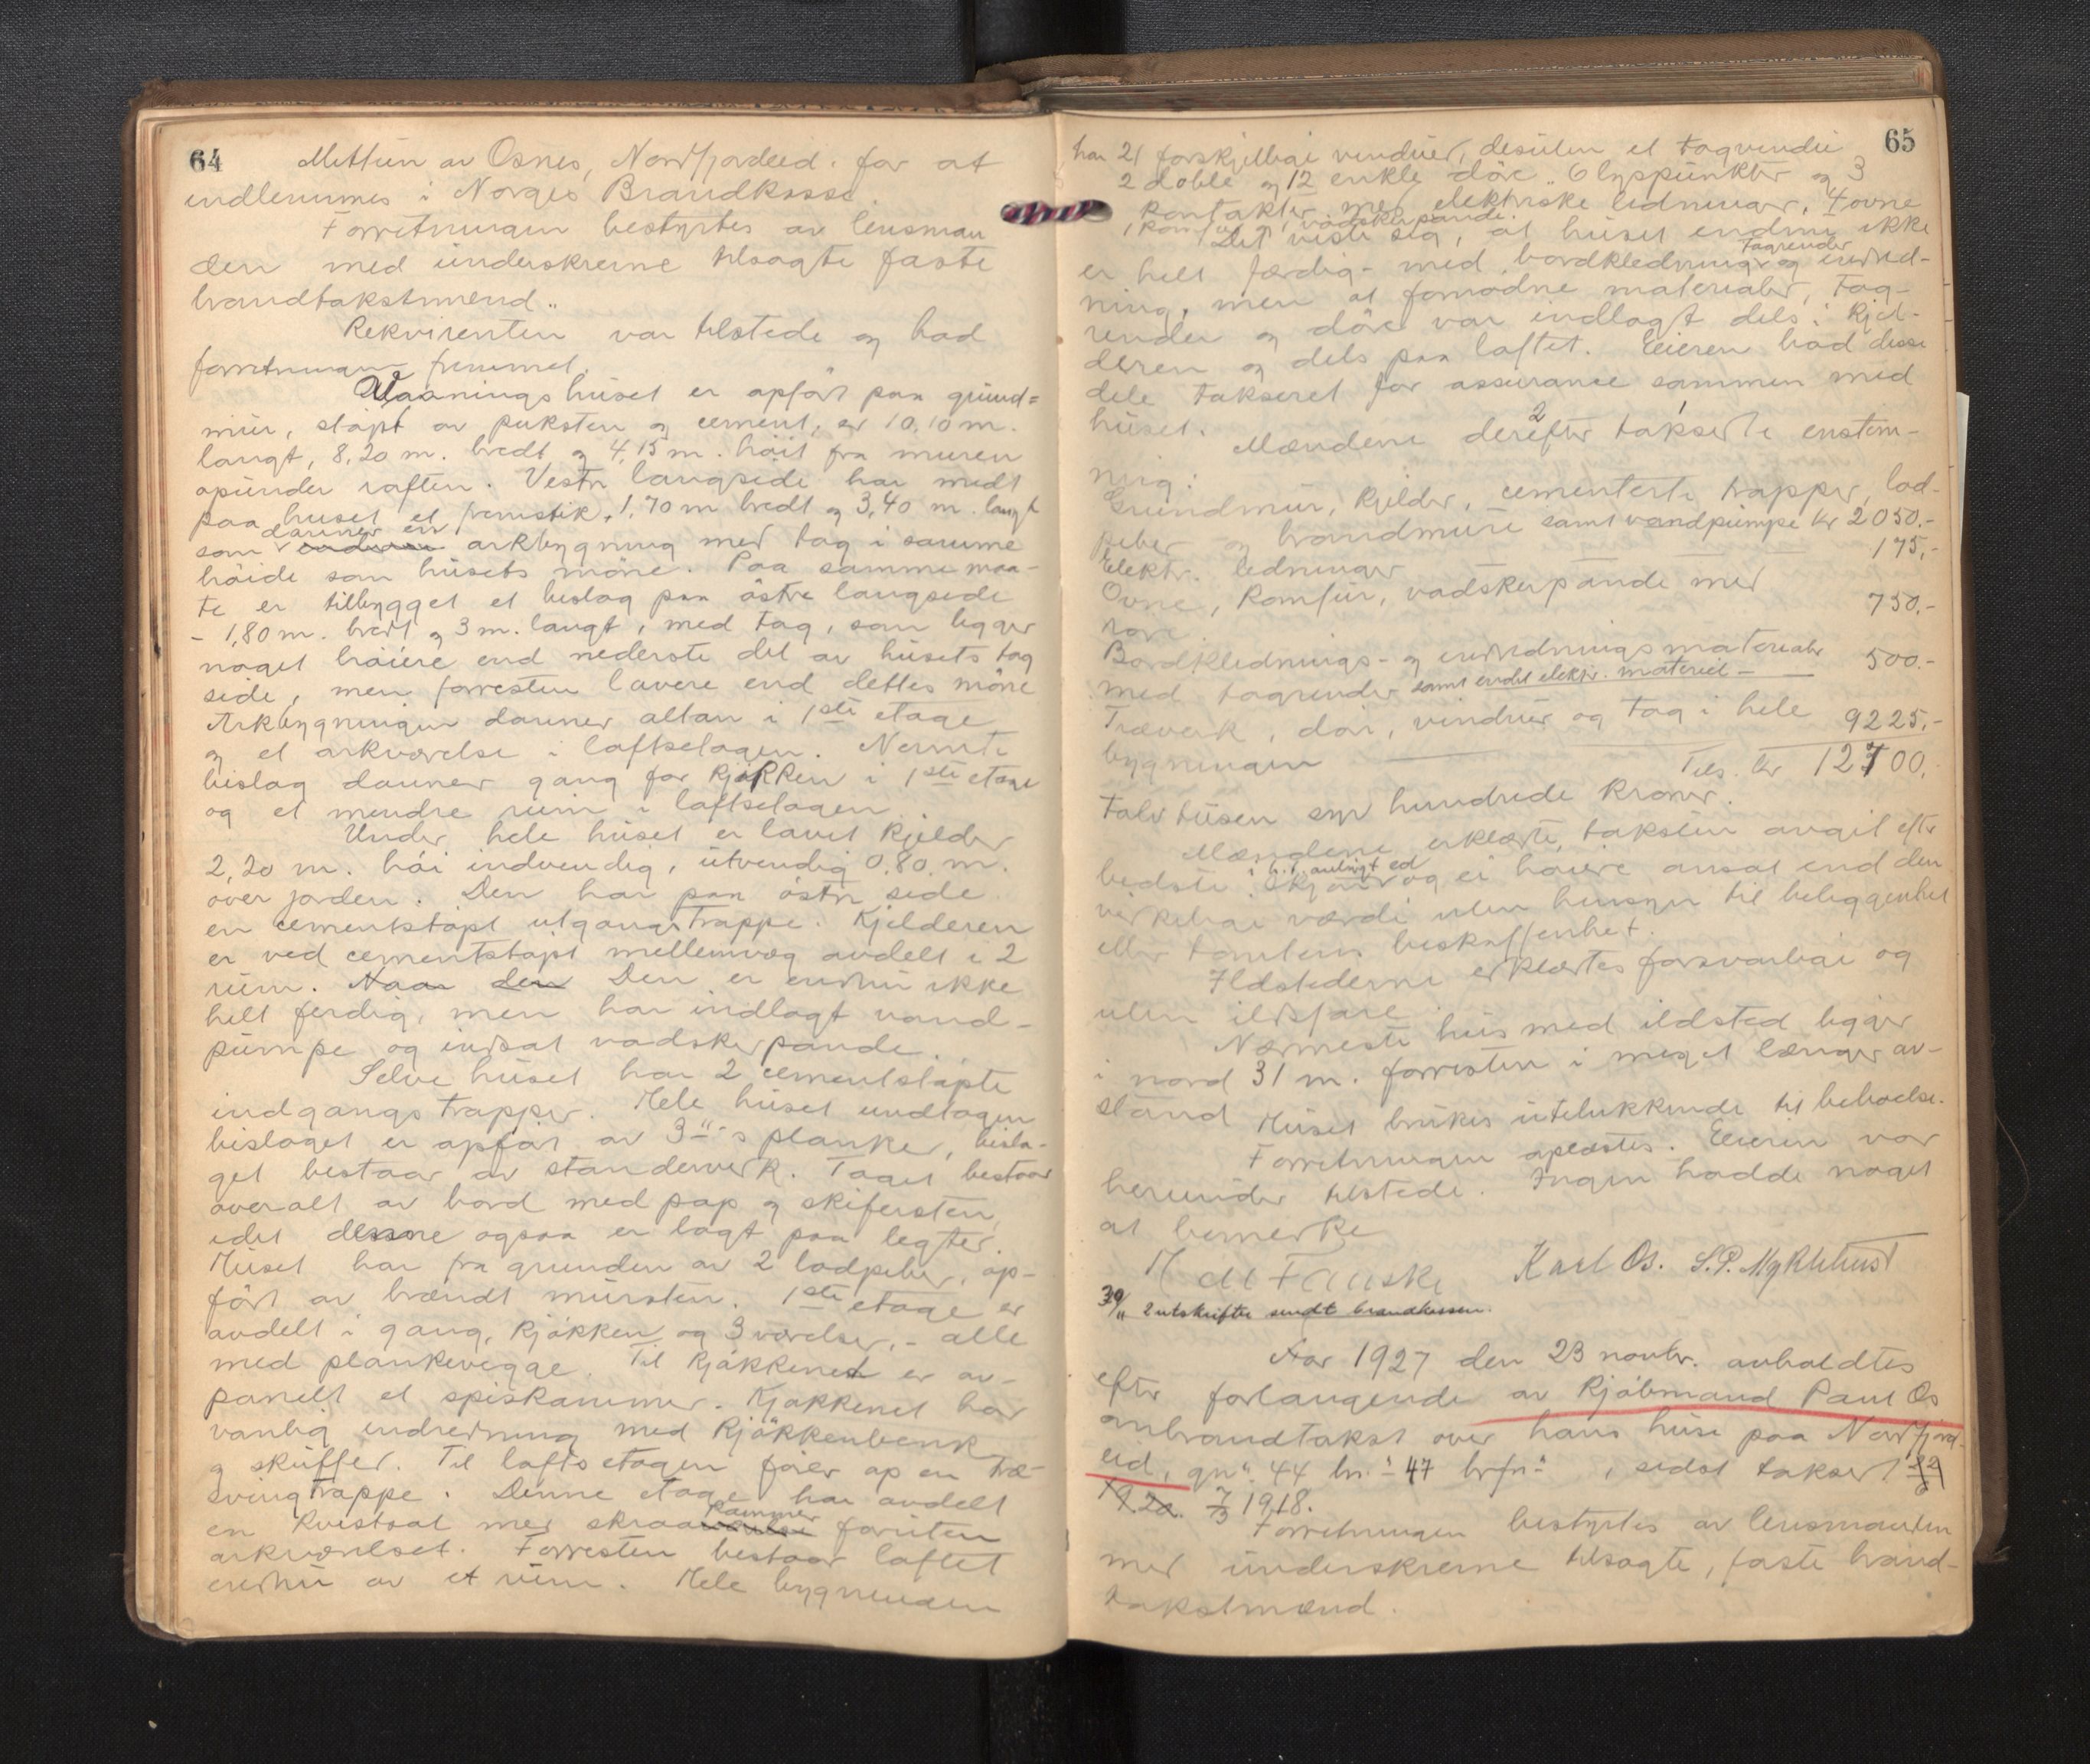 64
Mattien av Osnes, Nordfjordeid. for at
indlemmes i Norges Brandkasse.
Forretningen bestyrtes av lensman
den med underskrevne tilsagte faste
brandtakstmænd.
Rekvirenten var tilstede og bad
forretningen fremmet.
Vaaningshuset er opført paa grund=
mur, støpt av puksten og cement, er 10,10 m.
langt, 8,20 m. bredt og 4,15 m. høit fra muren
opunder raften. Vestre langside har midt
paa huset et fremstik, 1,70 m bredt og 3,40 m. langt
som danner en arkbygning med tag i samme
høide som husets møne. Paa samme maa-
te er tilbygget et bislag paa østre langside
- 1,80 m. bredt og 3 m. langt, med tag, som ligger
noget høiere end nederste del av husets tag
side, men forresten lavere end dettes møne
Arkbygningen danner altan i 1ste etage
og et arkværelse i loftsetagen. Nevnte
bislag danner gang for kjøkken i 1ste etage
og et mindre rum i loftsetagen.
Under hele huset er lavet kjelder
2,20 m. høi indvendig, utvendig 0,80 m.
over jorden. Den har paa østre side
en cementstøpt utgangstrappe. Kjelderen
er ved cementstøpt mellemvæg avdelt i 2
rum. Naar den Den er endnu ikke
helt ferdig, men har indlagt vand-
pumpe og indsat vadskepande.
Selve huset har 2 cementstøpte
indgangstrapper. Hele huset undtagen
bislaget er opført av 3"s planke, bisla-
get bestaar av standerverk. Taget bestaar
overalt av bord med pap og skifersten,
idet dessne ogsaa er lagt paa legter.
Huset har fra grunden av 2 lodpiber, op-
ført av brændt mursten. 1ste etage er
avdelt i gang, kjøkken og 3 værelser, - alle
med plankevegge. Til kjøkkenet er av-
panelt et spiskammer. Kjøkkenet har
vanlig indredning med kjøkkenbenk
og skuffer. Til loftsetagen fører op en træ-
svingtrappe. Denne etage har avdelt
en kvistsal med skraakammer foruten
arkværelset. Forresten bestaar loftet
endnu av et rum. Hele bygningen
65
har 21 forskjellige vinduer, desuten et tagvindu
2 doble og 12 enkle døre. 6 lyspunkter og 3
kontakter med elektriske ledninger, 4 ovne
1 komfur, 1 vadskepande.
Det viste sig, at huset endnu ikke
er helt færdig med bordkledning, tagrender og indred-
ning, men at fornødne materialer, tag-
render og døre var indlagt dels i kjel-
deren og dels paa loftet. Eieren bad disse
dele takseret for assurance sammen med
huset.
Mændene derefter takserte enstem-
mig:
Grundmur, kjelder, cementerte trapper, lod-
piber og brandmure samt vandpumpe kr 2050.-
Elektr. ledninger 175,-
Ovne, komfur, vadskepande med
rør 750.-
Bordklednings- og indredningsmaterialer
med tagrender samt endel elektr. materiel - 500.-
Træverk, dør, vinduer og tag i hele
bygningen 9225,-
Tils. kr 12700,
Tolv tusen syv hundrede kroner.
Mændene erklærte, taksten avgit efter
bedste skjøn i h. t. avlagt ed og ei høiere ansat end den
virkelige værdi uten hensyn til beliggenhet
eller tomtens beskaffenhet.
Ildstederne erklærtes forsvarlige og
uten ildsfare.
Nærmeste hus med ildsted ligger
i nord 31 m. forresten i meget længer av-
stand
Huset brukes utelukkende til beboelse.
Forretningen oplæstes. Eieren var
herunder tilstede. Ingen hadde noget
at bemerke
Karl Os. S.P. Myklebust
30/11 2 utskrifter sendt brandkassen.
Aar 1927 den 23 novbr. avholdtes
efter forlangende av kjøbmand Paul Os
ombrandtakst over hans huse paa Nordfjord-
eid, gn" 44 bn." 47 brfn" , sidst taksert
1920. 7/3 1918.
Forretningen bestyrtes av lensmanden
med underskrevne tilsagte, faste brand-
takstmænd.